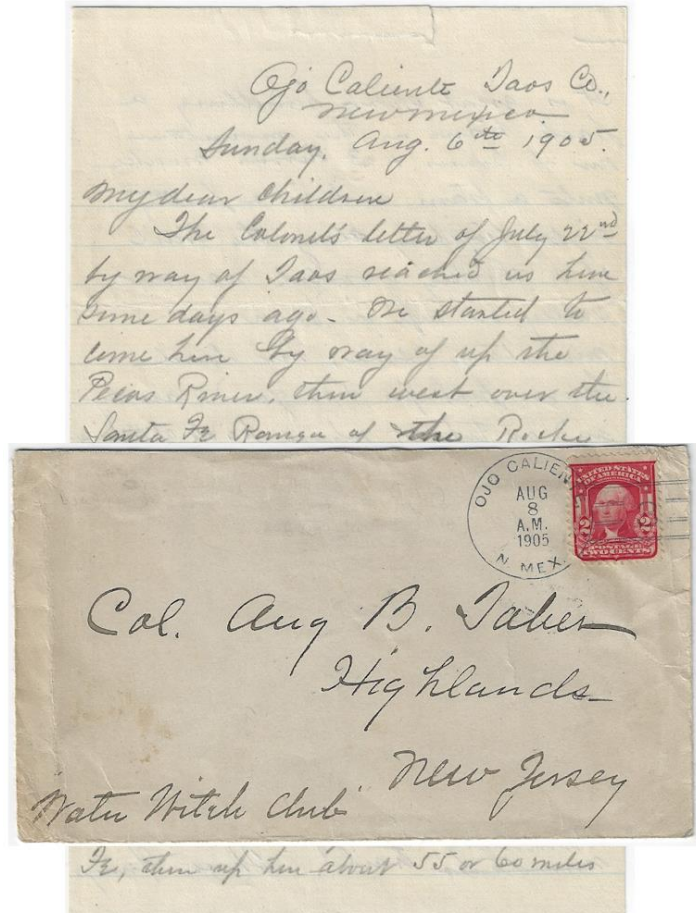 Ojo Caliente Taos Co.,
New Mexico
Sunday, Aug. 6th 1905.
My dear Children
The Colonel's letter of July 22nd
by way of Taos reached us here
some days ago - We started to
come here by way of up the
Pecos River, then west over the
Santa Fe Range of the Rocke
OJO CALIEN
AUG
8
A.M.
1905
N. MEX.
UNITED STATES
OF AMERICA
2 2
POSTAGE
TWO CENTS
Col. Aug B. Taber
Highlands
New Jersey
Water Witch Club
Fe, then up here about 55 or 60 miles